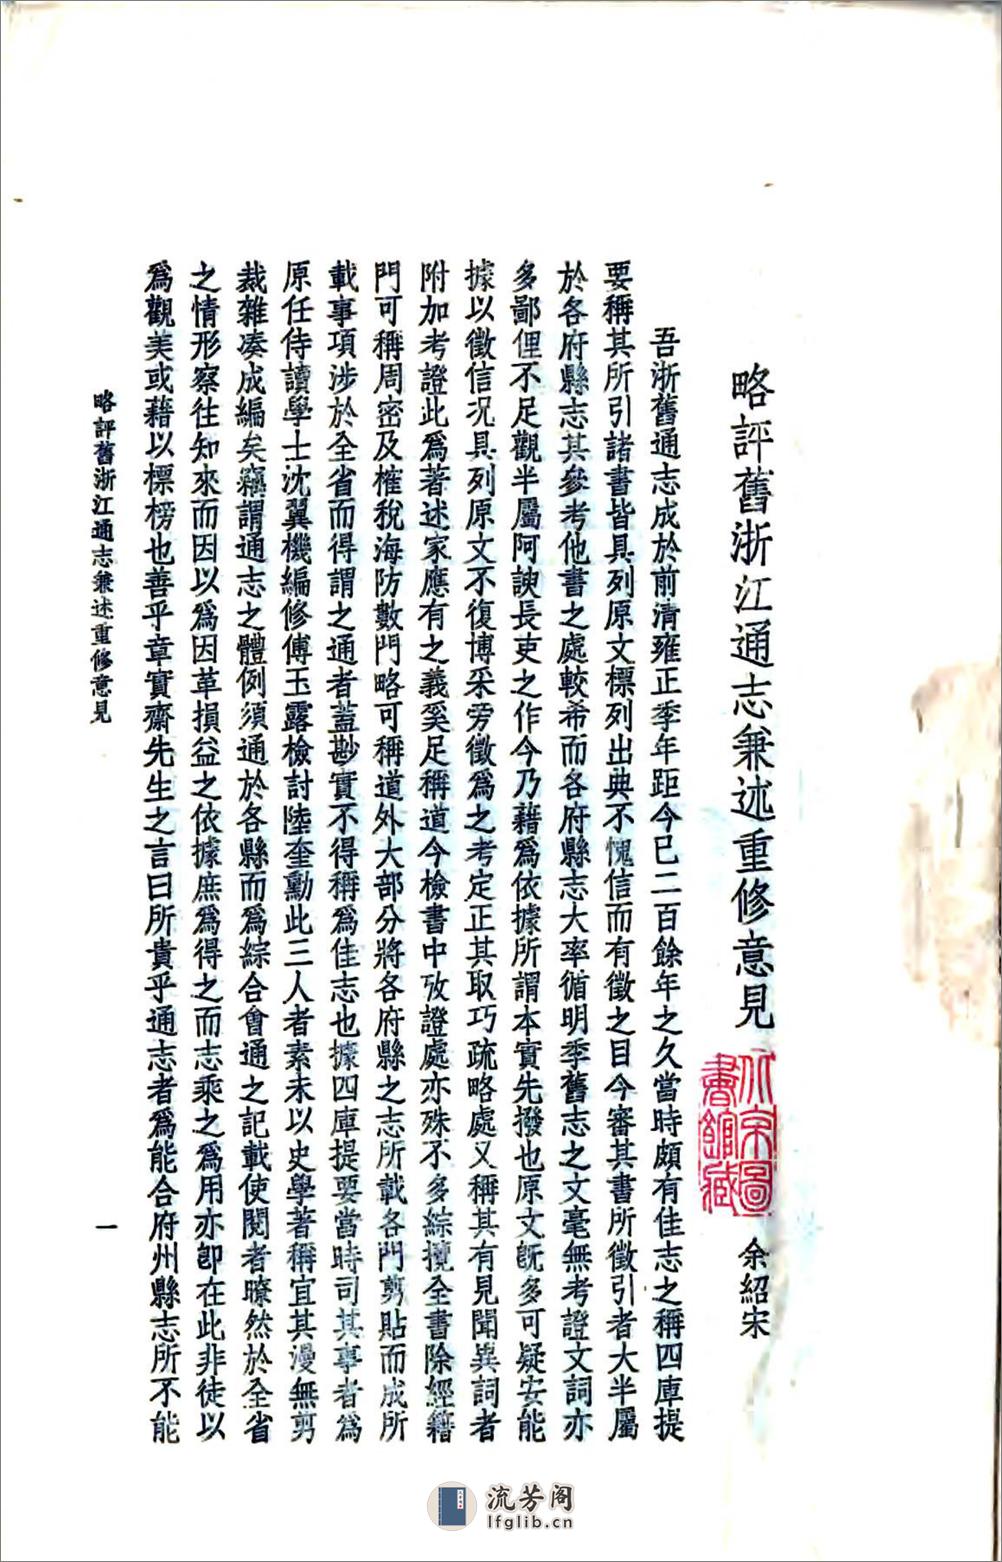 略評舊浙江通志兼述重修意見
余紹宋
吾浙舊通志成於前清雍正季年距今已二百餘年之久當時頗有佳志之稱四庫提
要稱其所引諸書皆具列原文標列出典不愧信而有徵之目今審其書所徵引者大半屬
於各府縣志其參考他書之處較希而各府縣志大率循明季舊志之文毫無考證文詞亦
多鄙俚不足觀半屬阿諛長吏之作今乃藉為依據所謂本實先撥也原文既多可疑安能
據以徵信况具列原文不復博采旁徵為之考定正其取巧疏略處又稱其有見聞異詞者
附加考證此為著述家應有之義奚足稱道今檢書中攷證處亦殊不多綜攬全書除經籍
門可稱周密及榷稅海防數門略可稱道外大部分將各府縣之志所載各門剪貼而成所
載事項涉於全省而得謂之通者蓋尠實不得稱為佳志也據四庫提要當時司其事者為
原任侍讀學士沈翼機編修傅玉露檢討陸奎勳此三人者素未以史學著稱宜其漫無剪
裁雜凑成編矣竊謂通志之體例須通於各縣而為綜合會通之記載使閱者瞭然於全省
之情形察往知來而因以為因革損益之依據庶為得之而志乘之為用亦卽在此非徒以
為觀美或藉以標榜也善乎章實齋先生之言曰所貴乎通志者為能合府州縣志所不能
略評舊浙江通志兼述重修意見
一
流芳阁
lfglib.cn